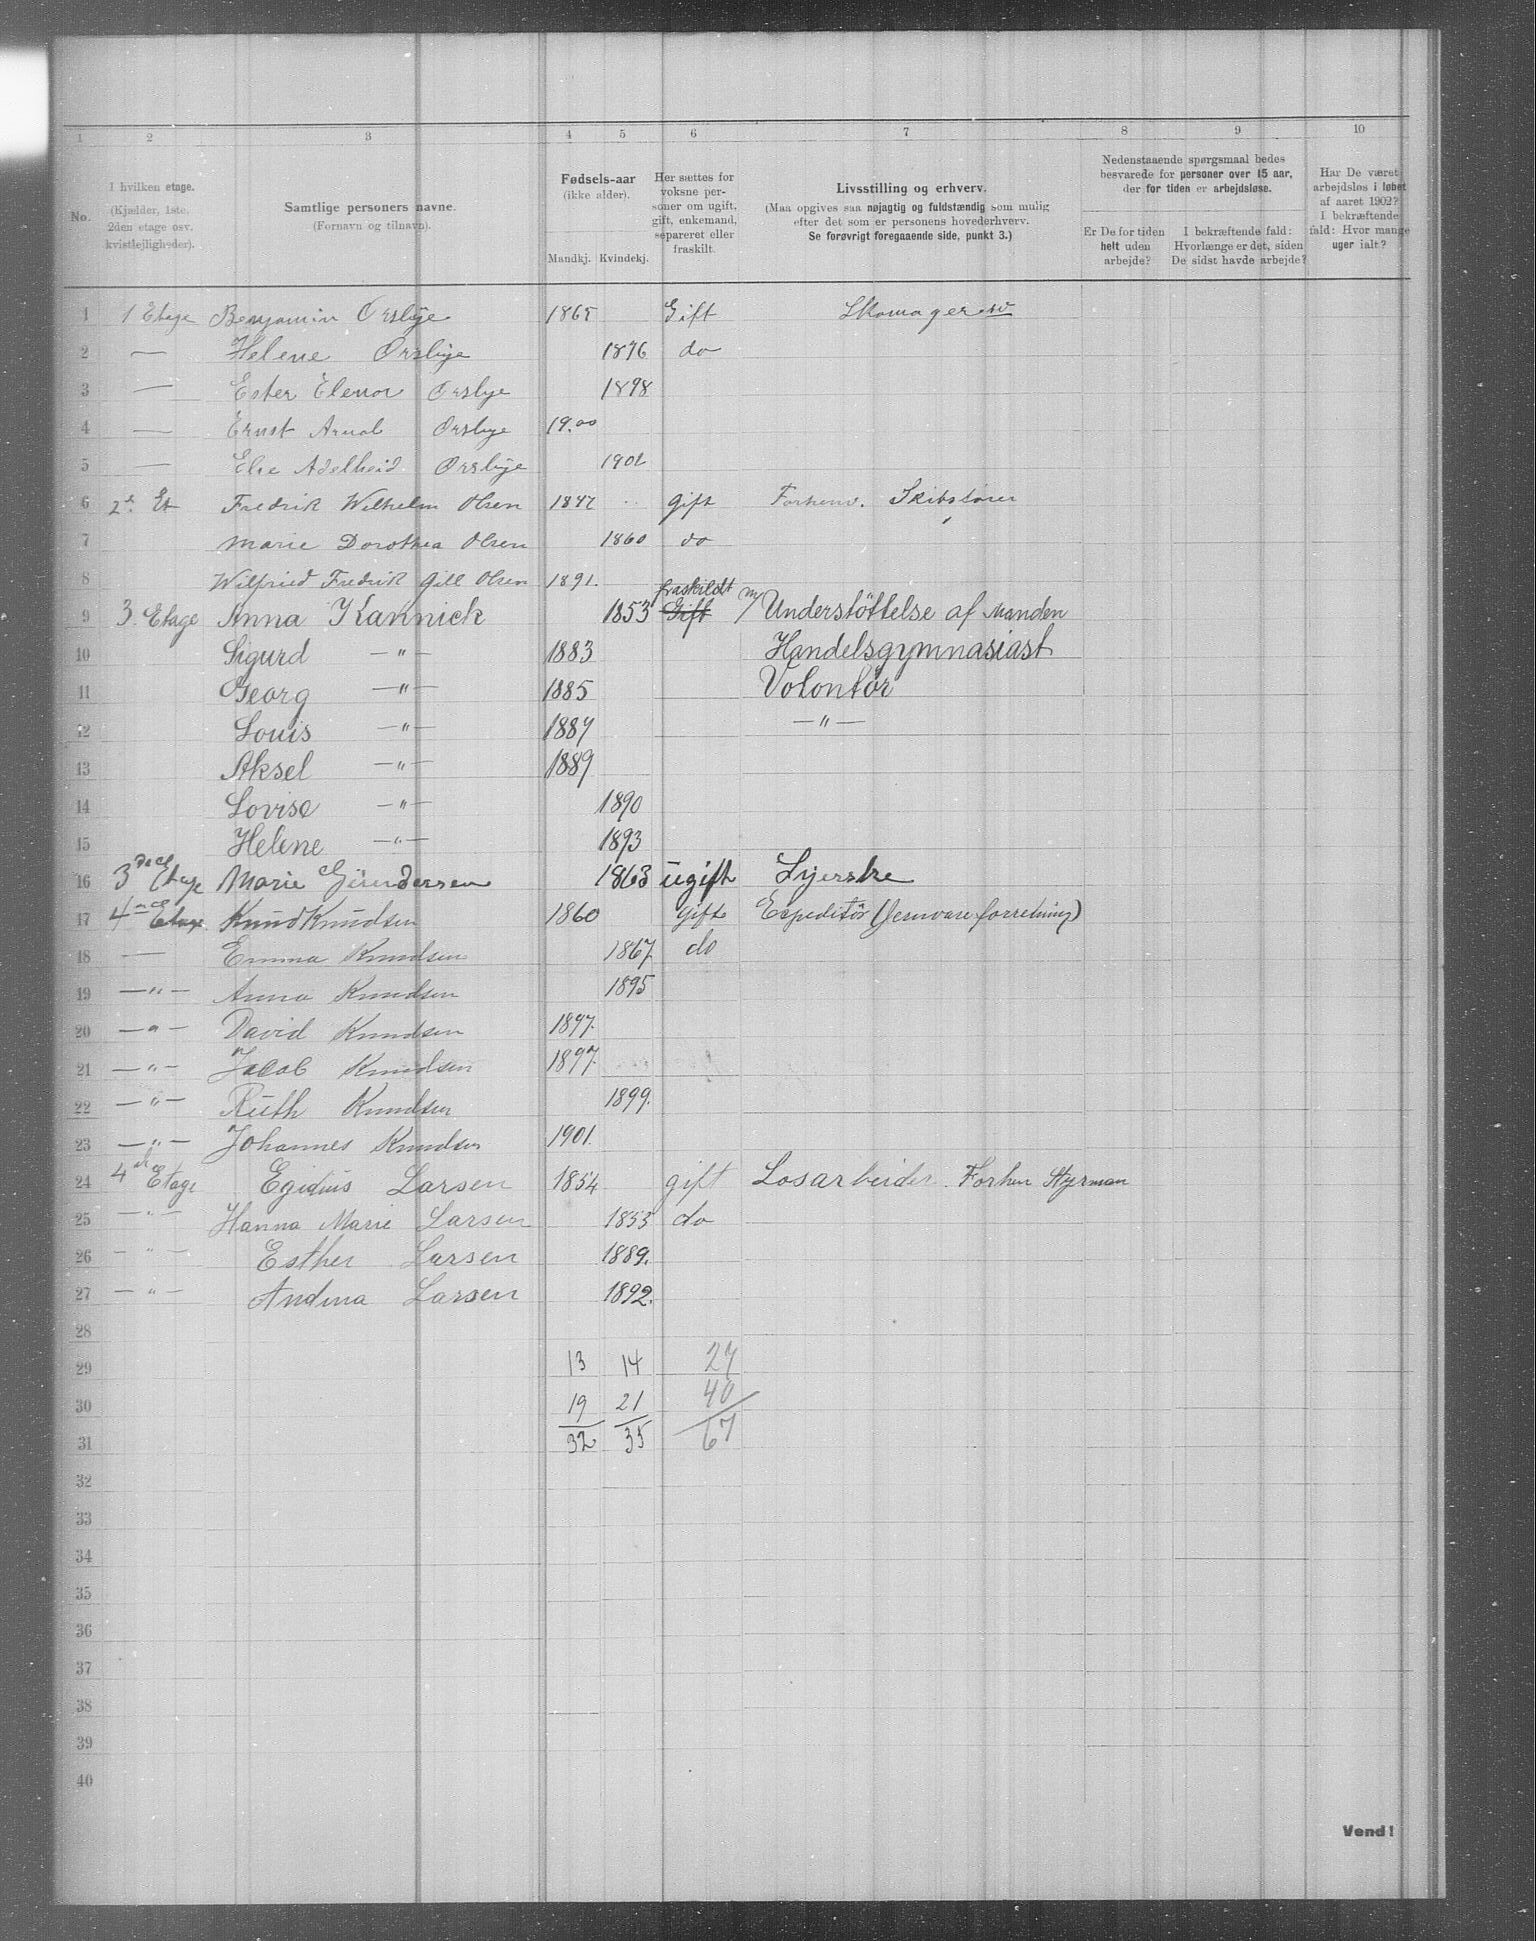 1 2 3 4 5 6 7 8 9 10
No.
I hvilken etage.
(Kjælder, 1ste,
2den etage osv.
kvistlejligheder).
Samtlige personers navne.
(Fornavn og tilnavn).
Fødsels-aar
(ikke alder).
Mandkj. Kvindekj.
Her sættes for
voksne per-
soner om ugift,
gift, enkemand,
separeret eller
fraskilt.
Livsstilling og erhverv.
(Maa opgives saa nøjagtig og fuldstændig som mulig
efter det som er personens hovederhverv.
Se forøvrigt foregaaende side, punkt 3.)
Nedenstaaende spørgsmaal bedes
besvarede for personer over 15 aar,
der for tiden er arbejdsløse.
Er De for tiden
helt uden
arbejde?
I bekræftende fald:
Hvorlænge er det, siden
De sidst havde arbejde?
Har De været
arbejdsløs i løbet
af aaret 1902?
I bekræftende
fald: Hvor mange
uger ialt?
1 1 Etage Benjamin Orslye 1865 Gift Skomagersv
2 — Helene Orslye 1876 do
3 — Ester Elenor Orslye 1898
4 — Ernst Arnol Orslye 19.00
5 — Else Adelheid Orslye 1902
6 2d. Et Fredrik Wilhelm Olsen 1847 gift Forhenv. Skibsfører
7 Marie Dorothea Olsen 1860 do
8 Wilfried Fredrik Gill Olsen 1891.
9 3. Etage Anna Kannick 1853 fraskildt Gift m/ Understöttelse af Manden
10 Sigurd —"— 1883 Handelsgymnasiast
11 Georg —"— 1885 Volontör
12 Louis —"— 1887 —"—
13 Aksel —"— 1889
14 Lovise —"— 1890
15 Helene —"— 1893
16 3die Etage Marie Gundersen 1863 ugift Syerske
17 4de Etage Knud Knudsen 1860 gift Expeditör (Jernvareforretning)
18 — Emma Knudsen 1867. do
19 —"— Anna Knudsen 1895
20 —"— David Knudsen 1897.
21 —"— Jacob Knudsen 1897.
22 —"— Ruth Knudsen 1899.
23 —"— Johannes Knudsen 1901.
24 4de Etage Egidius Larsen 1854 gift Losarbeider. Forhen Styrman
25 —"— Hanna Marie Larsen 1853 do
26 —"— Esther Larsen 1889.
27 —"— Andina Larsen 1892.
28
29 13 14 27
30 19 21 40
31 32 35 67
32
33
34
35
36
37
38
39
40
Vend!